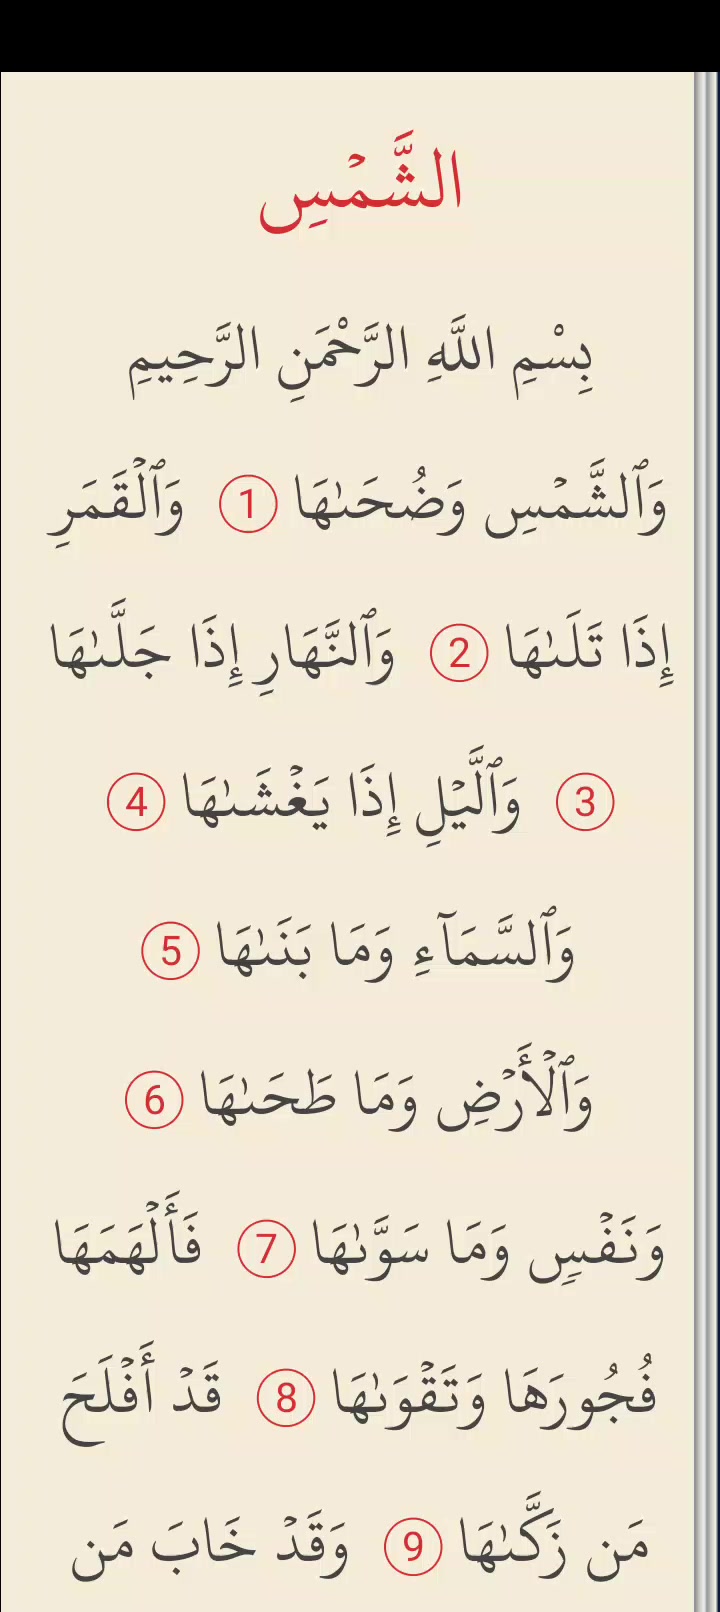 الشَّمۡسِ
بِسْمِ اللَّهِ الرَّحْمَنِ الرَّحِيمِ
وَٱلشَّمۡسِ وَضُحَىٰهَا 1 وَٱلۡقَمَرِ
إِذَا تَلَىٰهَا 2 وَٱلنَّهَارِ إِذَا جَلَّىٰهَا
3 وَٱلَّيۡلِ إِذَا يَغۡشَىٰهَا 4
وَٱلسَّمَآءِ وَمَا بَنَىٰهَا 5
وَٱلۡأَرۡضِ وَمَا طَحَىٰهَا 6
وَنَفۡسٖ وَمَا سَوَّىٰهَا 7 فَأَلۡهَمَهَا
فُجُورَهَا وَتَقۡوَىٰهَا 8 قَدۡ أَفۡلَحَ
مَن زَكَّىٰهَا 9 وَقَدۡ خَابَ مَن